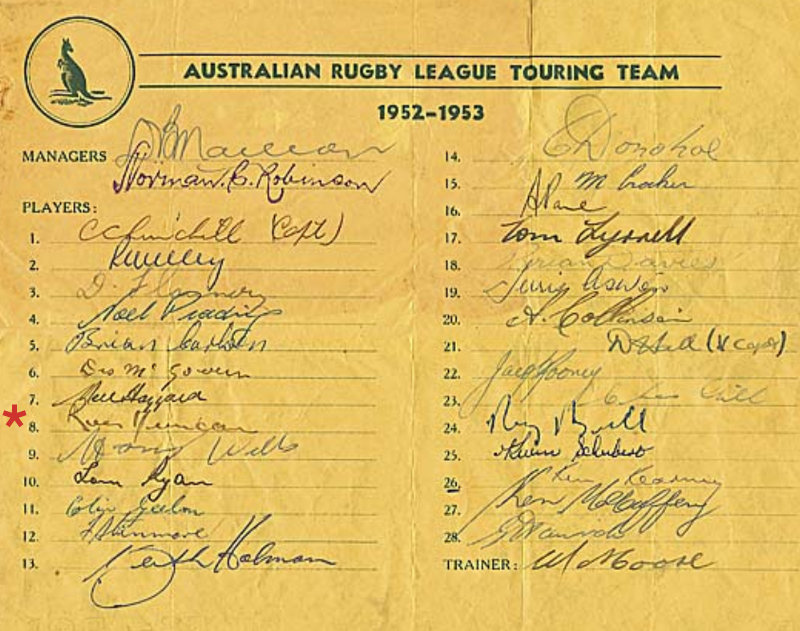 AUSTRALIAN RUGBY LEAGUE TOURING TEAM
1952-1953
MANAGERS
Norman. C. Robinson
PLAYERS:
1. C Churchill (Capt)
2.
3. D. Flannery
4. Noel Pidding
5. Brian Carlson
6. Des McGovern
7. 
* 8. Ross Duncan
9. Harry Wells
10. Tom Ryan
11. Colin Geelan
12. F Stanmore
13. Keith Holman
14. C Donohoe
15. M Crocker
16. A Paul
17. Tom Tyrrell
18. Brian Davies
19. Ferris Ashton
20. A. Collinson
21. D Hall (V Capt)
22. Jack Rooney
23. Chas Gill
24. Roy Bull
25. Kevin Schubert
26. Ken Kearney
27. Ken McCaffery
28.
TRAINER: W Moore